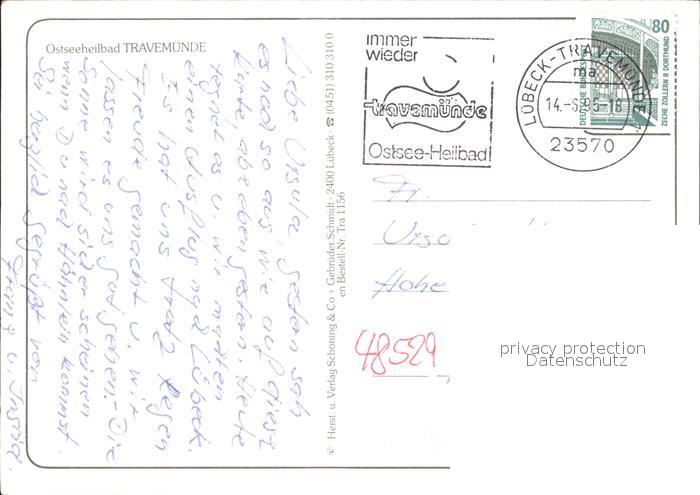 Ostseeheilbad TRAVEMÜNDE
Liebe Ursula, gestern sah
es noch so aus wie auf dieser
Karte, aber eben gestern. Heute
regnet es u. wir machten
einen Ausflug nach Lübeck.
Es hat uns trotz Regen
Freude gemacht u. wir
lassen es uns gutgehen. - Die
Sonne wird sicher scheinen
wenn Du nach Hähnlein kommst.
Sei herzlich gegrüßt von
u.
© Herst. u. Verlag Schöning & Co + Gebrüder Schmidt · 2400 Lübeck · ☎ (0451) 310 310 0
en Bestell-Nr. Tra 1156
immer
wieder
travemünde
Ostsee-Heilbad
LÜBECK-TRAVEMÜNDE
ma
14.-6.95-18
23570
80
DEUTSCHE BUNDESPOST
ZECHE ZOLLERN II DORTMUND
Fr.
Urso
Hohe
48529
privacy protection
Datenschutz